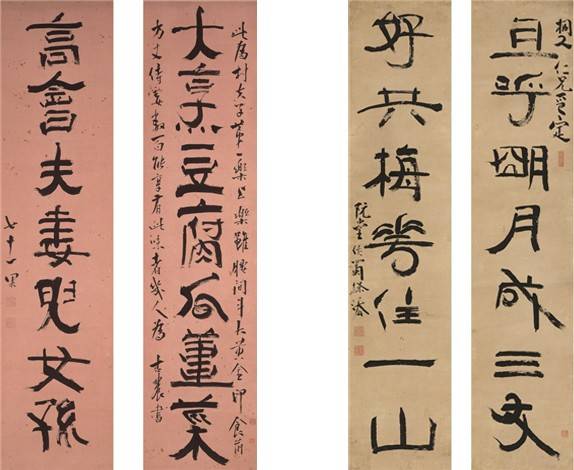 且呼明月成三友
仁兄
定
好共梅花住一山
阮堂
大烹豆腐瓜薑菜
此爲村夫子第一樂上樂雖腰間斗大黃金印食前
方丈侍妾數百能享有此味者幾人爲 古農書
高會夫妻兒女孫
七十一果